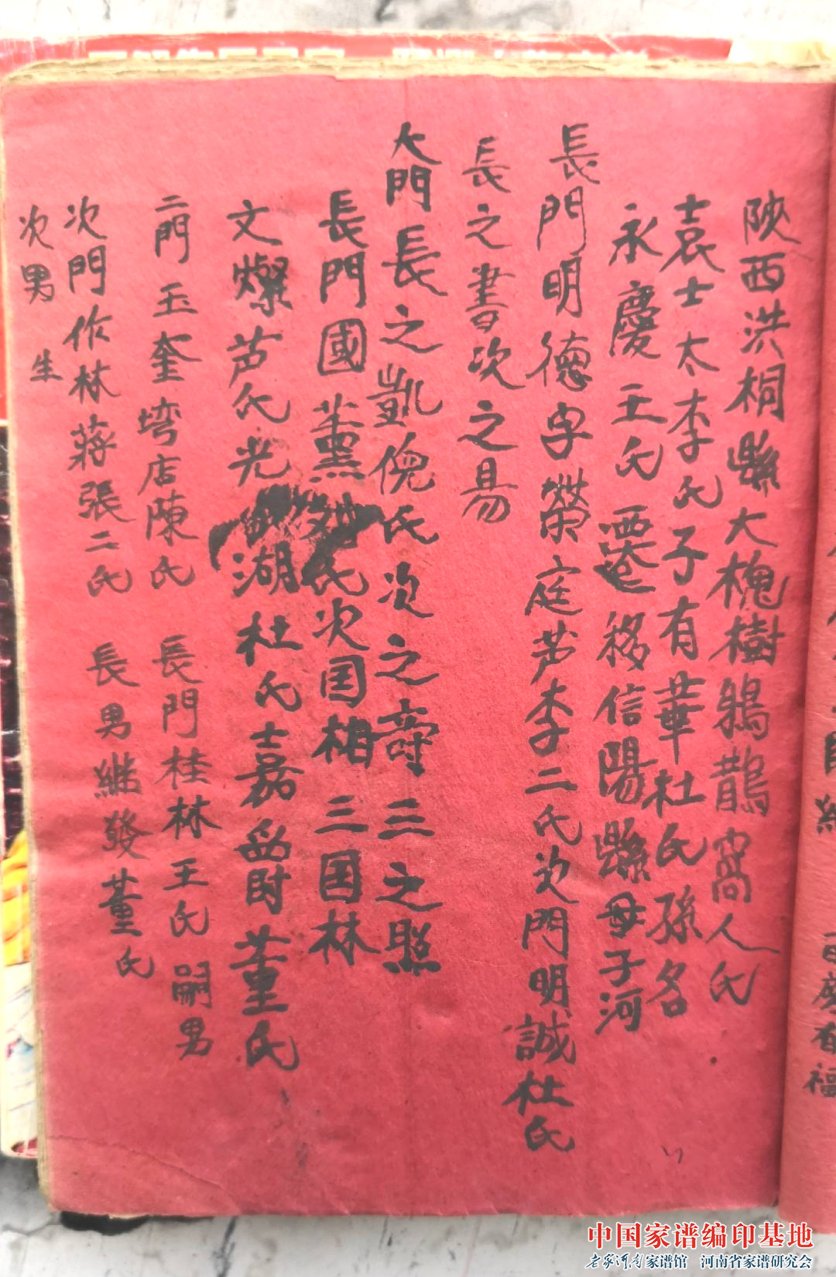 陝西洪桐縣大槐樹鴉鵲窩人氏
袁士太李氏子有華杜氏孫名
永慶王氏遷移信陽縣母子河
長門明德字榮庭芦李二氏次門明誠杜氏
長之書次之易
大門長之凱倪氏次之壽三之照
長門國薰 氏次囯柏三囯林
文燦芦氏光 湖杜氏士嘉 董氏
二門玉奎塆店陳氏 長門桂林王氏嗣男
次門作林蔣張二氏 長男継發董氏
次男 生
中国家谱编印基地
老家河南家谱馆 河南省家谱研究会